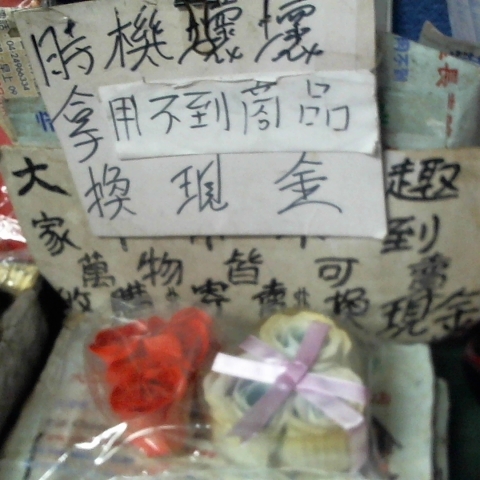 時機壞壞
拿用不到商品
換現金
大
趣
家
到
萬物皆可賣
收購寄賣換現金